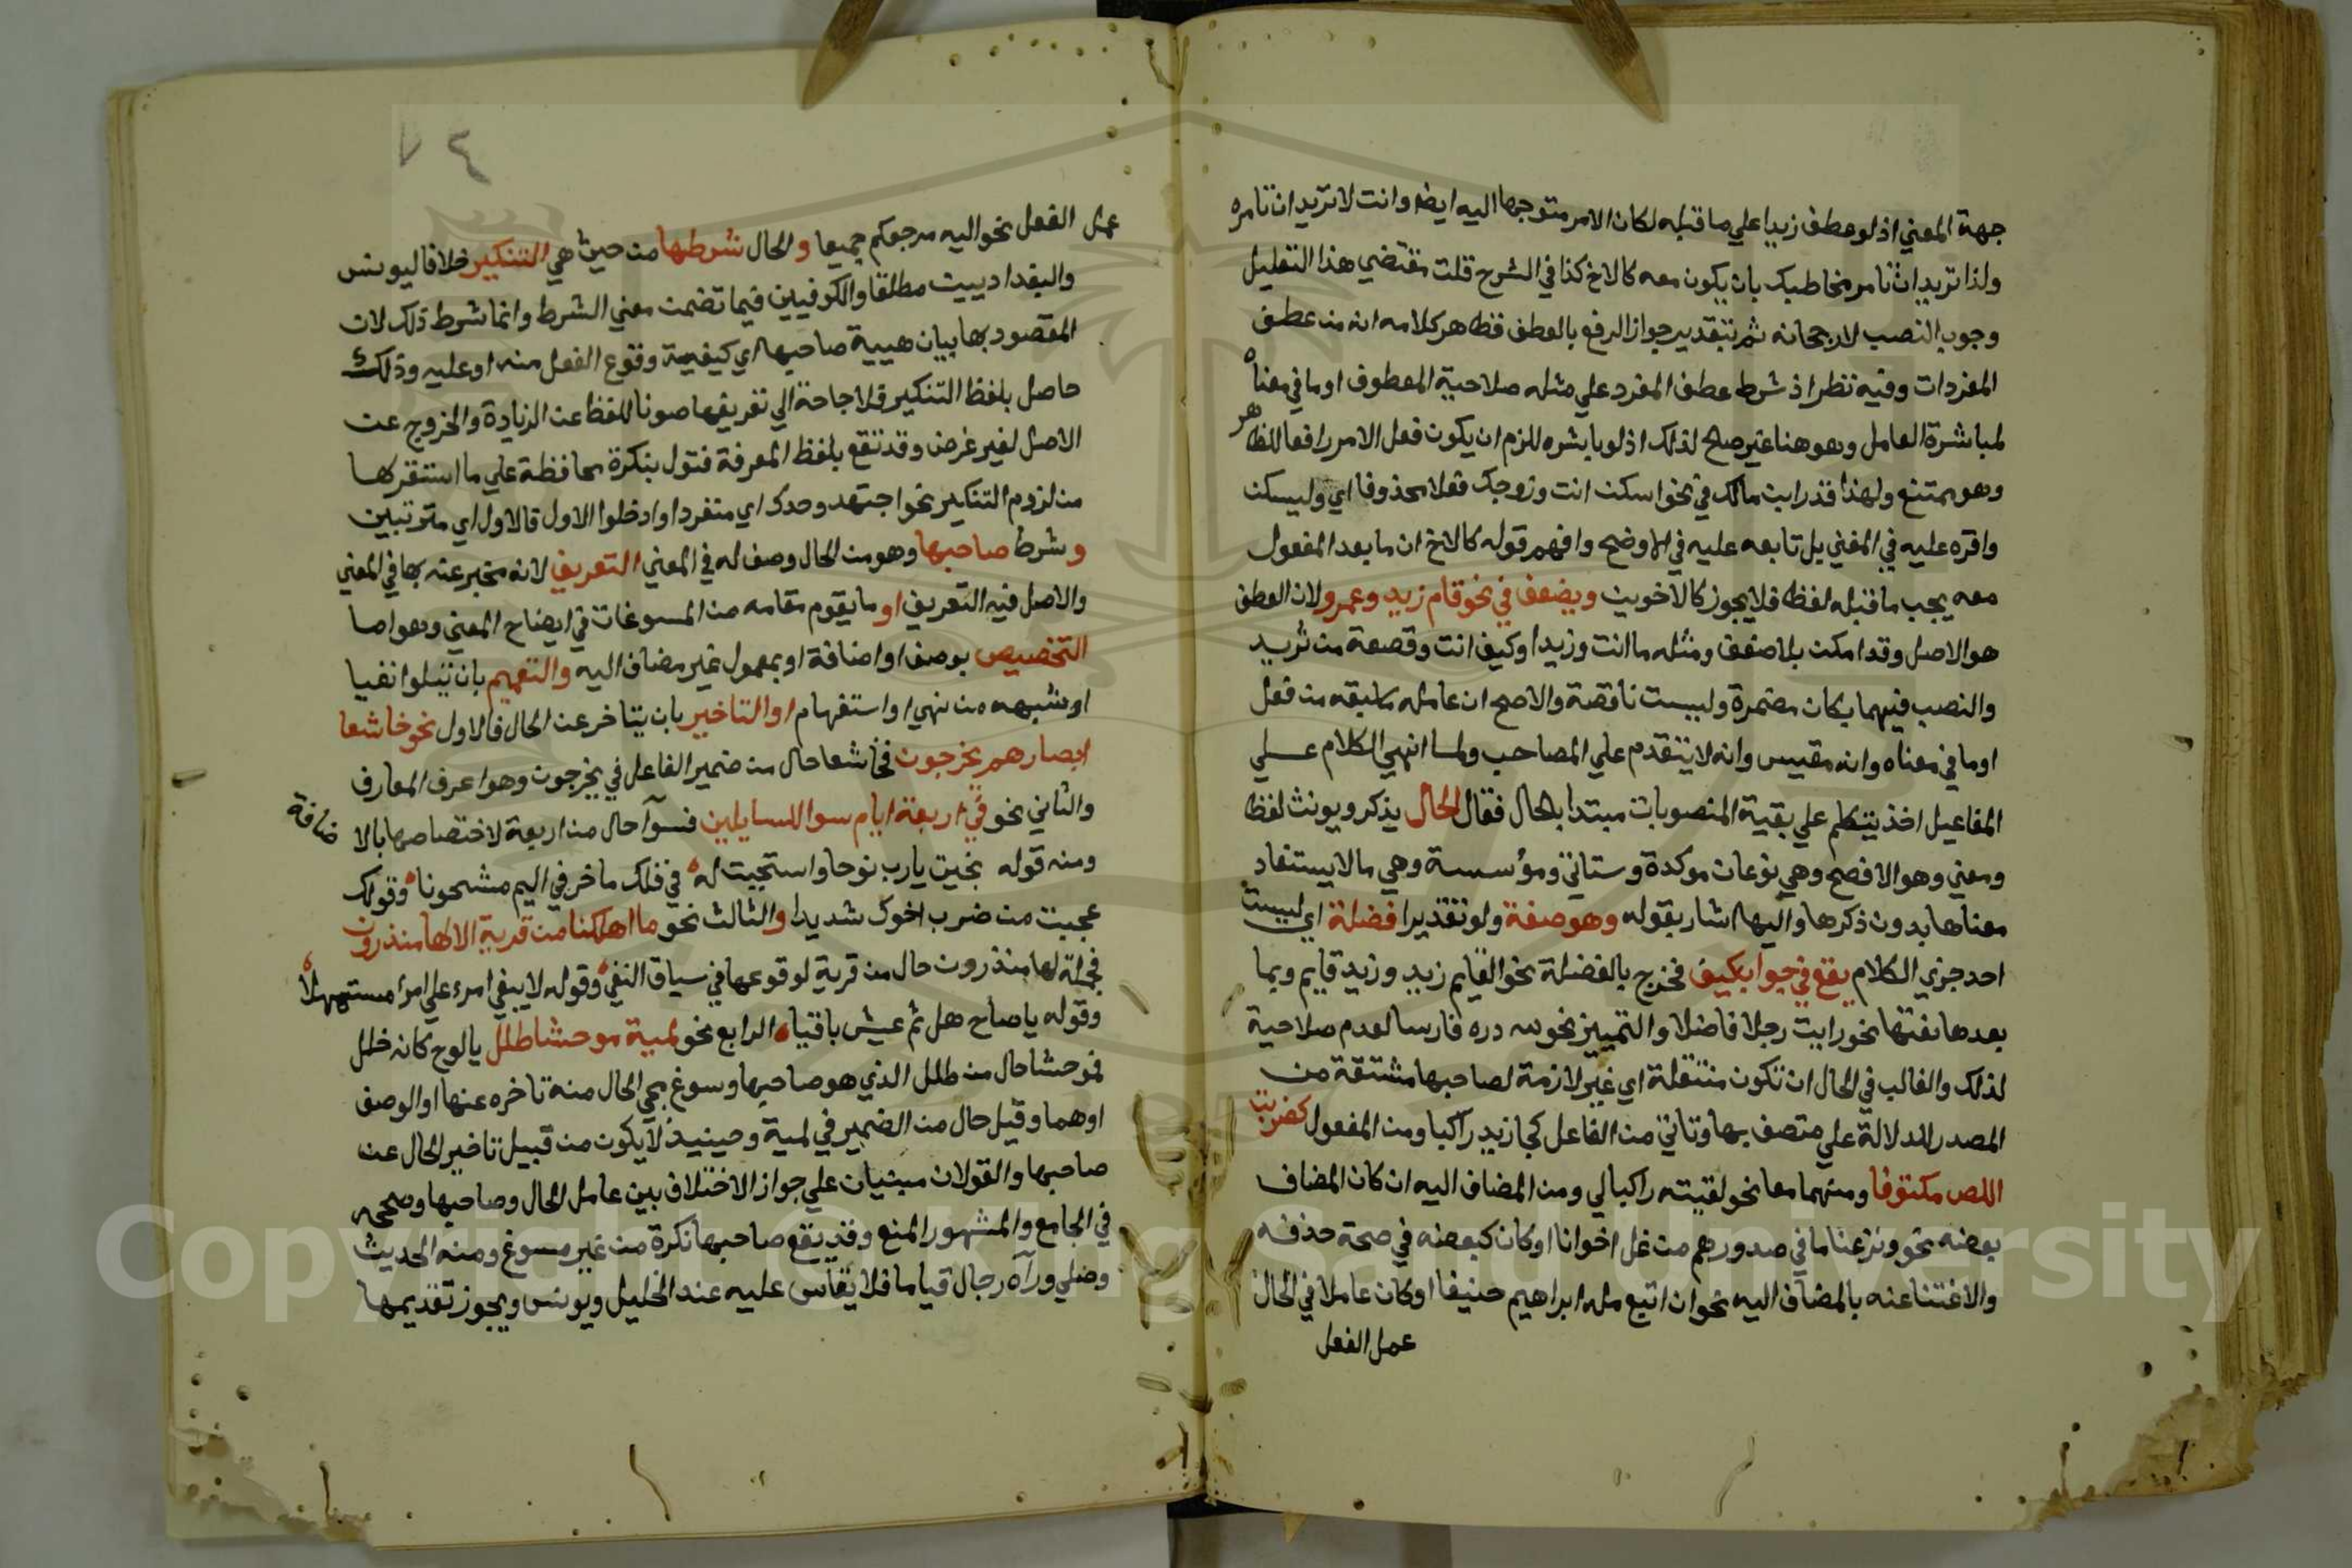 جهة المعني اذ لو عطف زيدا علي ما قبله لكان الامر متوجها اليه ايضا وانت لا تريد ان تامره
ولذا تريد ان تامر مخاطبك بان يكون معه كالاخ كذا في الشرح قلت مقتضي هذا التعليل
وجوب النصب لا رجحانه ثم بتقدير جواز الرفع بالعطف فظاهر كلامه انه من عطف
المفردات وفيه نظر اذ شرط عطف المفرد علي مثله صلاحية المعطوف او ما في معناه
لمباشرة العامل وهو هنا غير صالح لذلك اذ لو باشره للزم ان يكون فعل الامر رافعا للظاهر
وهو ممتنع ولهذا قدر ابن مالك في نحو اسكن انت وزوجك فعلا محذوفا اي وليسكن
واقره عليه في المغني بل تابعه عليه في الاوضح وافهم قوله كالاخ ان ما بعد المفعول
معه يجب ما قبله لفظا فلا يجوز كالاخوين ويضعف في نحو قام زيد وعمرو لان العطف
هو الاصل وقد امكن بلا ضعف ومثله ما انت وزيدا وكيف انت وقصعة من ثريد
والنصب فيهما بكان مضمرة وليست ناقصة والاصح ان عامله ما سبقه من فعل
او ما في معناه وانه مقيس وانه لا يتقدم علي المصاحب ولما انهي الكلام علي
المفاعيل اخذ يتكلم علي بقية المنصوبات مبتدا بالحال فقال الحال يذكر ويونث لفظا
ومعني وهو الافصح وهي نوعان موكدة وستاتي ومؤسسة وهي ما لا يستفاد
معناها بدون ذكرها واليها اشار بقوله وهو صفة ولو تقديرا فضلة اي ليست
احد جزي الكلام يقع في جواب كيف فخرج بالفضلة نحو القايم زيد وزيد قايم وبما
بعدها نعتها نحو رايت رجلا فاضلا والتمييز نحو لله دره فارسا لعدم صلاحية
لذلك والغالب في الحال ان تكون منتقلة اي غير لازمة لصاحبها مشتقة من
المصدر للدلالة علي متصف بها وتاتي من الفاعل كجا زيد راكبا ومن المفعول كضربت
اللص مكتوفا ومنهما معا نحو لقيته راكبا لي ومن المضاف اليه ان كان المضاف
بعضه نحو ونزعنا ما في صدورهم من غل اخوانا او كان كبعضه في صحة حذفه
والاغتنا عنه بالمضاف اليه نحو ان اتبع ملة ابراهيم حنيفا او كان عاملا في الحال
عمل الفعل
٧٤
عمل الفعل نحو اليه مرجعكم جميعا والحال شرطها من حيث هي التنكير خلافا ليونس
والبغداديين مطلقا والكوفيين فيما تضمنت معني الشرط وانما شرط ذلك لان
المقصود بها بيان هيية صاحبها اي كيفية وقوع الفعل منه او عليه وذلك
حاصل بلفظ التنكير فلا حاجة الي تعريفها صونا للفظ عن الزيادة والخروج عن
الاصل لغير غرض وقد تقع بلفظ المعرفة فتول بنكرة محافظة علي ما استقر لها
من لزوم التنكير نحو اجتهد وحدك اي منفردا وادخلوا الاول فالاول اي مترتبين
وشرط صاحبها وهو من الحال وصف له في المعني التعريف لانه مخبر عنه بها في المعني
والاصل فيه التعريف او ما يقوم مقامه من المسوغات في ايضاح المعني وهو اما
التخصيص بوصف او اضافة او بمعمول غير مضاف اليه والتعميم بان تتلوا نفيا
او شبهه من نهي او استفهام او التاخير بان يتاخر عن الحال فالاول نحو خاشعا
ابصارهم يخرجون فخاشعا حال من ضمير الفاعل في يخرجون وهو اعرف المعارف
والثاني نحو في اربعة ايام سوا للسايلين فسوآ حال من اربعة لاختصاصها بالاضافة
ومنه قوله نجيت يا رب نوحا واستجبت له في فلك ماخر في اليم مشحونا وقولك
عجبت من ضرب اخوك شديدا والثالث نحو ما اهلكنا من قرية الا لها منذرون
فجملة لها منذرون حال من قرية لوقوعها في سياق النفي وقوله لا يبغي امرء علي امرا مستسهلا
وقوله يا صاح هل ثم عيش باقيا الرابع نحو لمية موحشا طلل يالوح كانه خلل
فموحشا حال من طلل الذي هو صاحبها وسوغ مجي الحال منه تاخره عنها او الوصف
او هما وقيل حال من الضمير في لمية وحينيذ لا يكون من قبيل تاخير الحال عن
صاحبها والقولان مبنيان علي جواز الاختلاف بين عامل الحال وصاحبها وصححه
في الجامع والمشهور المنع وقد يقع صاحبها نكرة من غير مسوغ ومنه الحديث
وصلي ورآه رجال قياما فلا يقاس عليه عند الخليل ويونس ويجوز تقديمها
Copyright © King Saud University